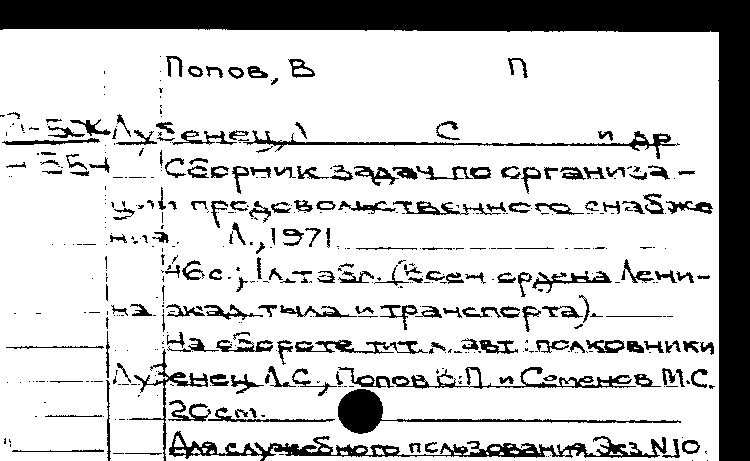 Попов, В П
Лубенец, Л С и др
Сборник задач по организа-
ции продовольственного снабже
ния. Л., 1971
46с.; 1л.табл. (Воен ордена Лени-
на акад. тыла и транспорта).
На обороте тит л. авт.: полковники
Лубенец Л.С., Попов В.П. и Семенов М.С.
20см.
Для служебного пользования Экз. N10.